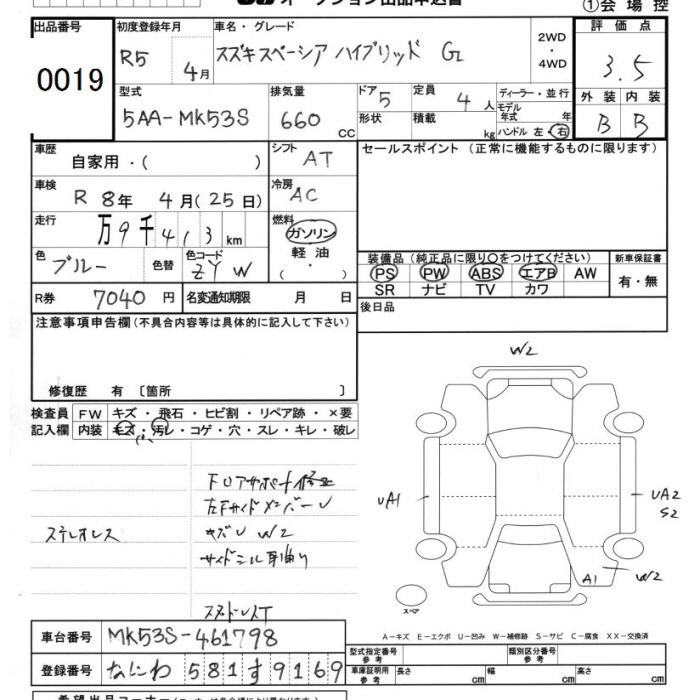 オークション出品申込書
①会場控
出品番号
0019
初度登録年月
R5 4月
車名・グレード
スズキスペーシア ハイブリッド G
2WD・4WD
評価点
3.5
型式
5AA-MK53S
排気量
660 cc
ドア 5
形状
定員 4 人
積載 kg
ディーラー・並行
モデル年式 年
ハンドル 左・右
外装 内装
B B
車歴
自家用・( )
シフト AT
セールスポイント(正常に機能するものに限ります)
車検
R 8年 4月(25日)
冷房 AC
走行
万9千413km
燃料
ガソリン
軽油
( ・ )
色 ブルー
色替
色コード ZYW
装備品(純正品に限り○をつけてください)
PS PW ABS エアB AW
SR ナビ TV カワ
新車保証書
有・無
R券 7040円
名変通知期限 月 日
後日品
注意事項申告欄(不具合内容等は具体的に記入して下さい)
修復歴 有〔箇所 〕
検査員記入欄
FW キズ・飛石・ヒビ割・リペア跡・×要
内装 キズ・汚レ・コゲ・穴・スレ・キレ・破レ
ステレオレス
左FサイドメンバーU
キズU W2
サイドシル耳曲り
W2
UA1
UA2
S2
A1
W2
スペア
A-キズ E-エクボ U-凹み W-補修跡 S-サビ C-腐食 XX-交換済
車台番号 MK53S-461798
登録番号 なにわ 581 す 9169
型式指定番号 参考
類別区分番号 参考
車庫証明用 参考
長さ cm 幅 cm 高さ cm